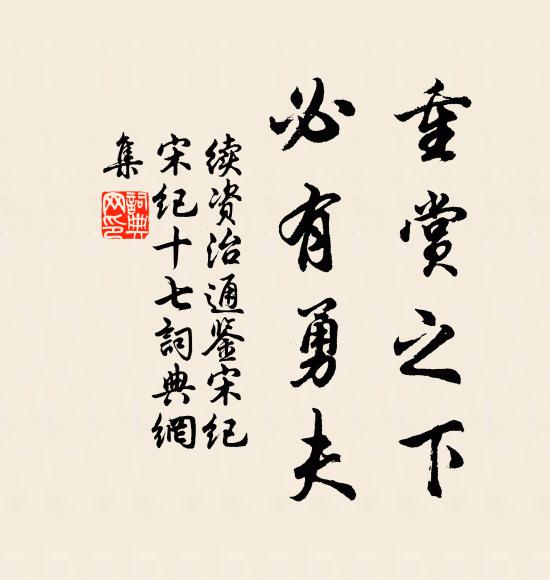 重赏之下
必有勇夫
续资治通鉴宋纪
宋纪十七詞典網
集
詞典
网印